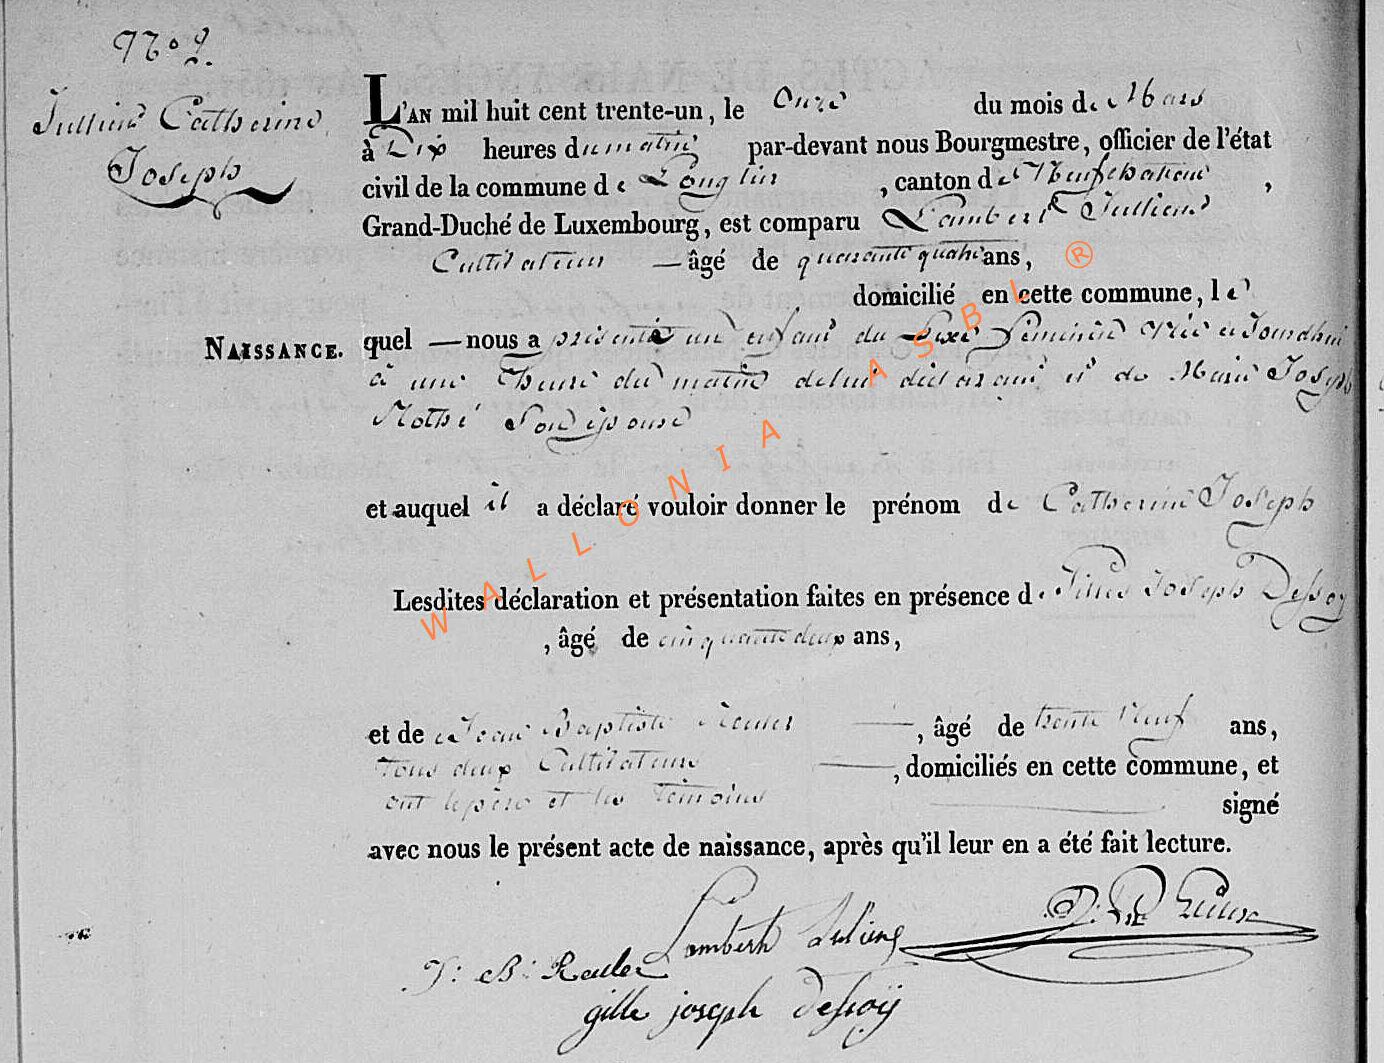 N.o 9.
Jullien Catherine
Joseph
L'AN mil huit cent trente-un, le Onze du mois de Mars
à Dix heures du matin par-devant nous Bourgmestre, officier de l'état
civil de la commune de Longlier, canton de Neufchateau,
Grand-Duché de Luxembourg, est comparu Lambert Jullien
Cultivateur — âgé de quarante quatre ans,
domicilié en cette commune, le
NAISSANCE. quel — nous a presenté un enfant du Sexe Féminin née aJourdhui
à une heure du matin delui déclarant et de Marie Joseph
Mothé Son épouse
et auquel il a déclaré vouloir donner le prénom de Catherine Joseph
Lesdites déclaration et présentation faites en présence de Gilles Joseph Dessoy
, âgé de cinquante deux ans,
et de Jean Baptiste — , âgé de trente neuf ans,
Tous deux Cultivateurs — , domiciliés en cette commune, et
ont le père et les Temoins — signé
avec nous le présent acte de naissance, après qu'il leur en a été fait lecture.
Lamberth Juliens
J: B: Reuler
gille joseph Dessoÿ
WALLONIA ASBL ®